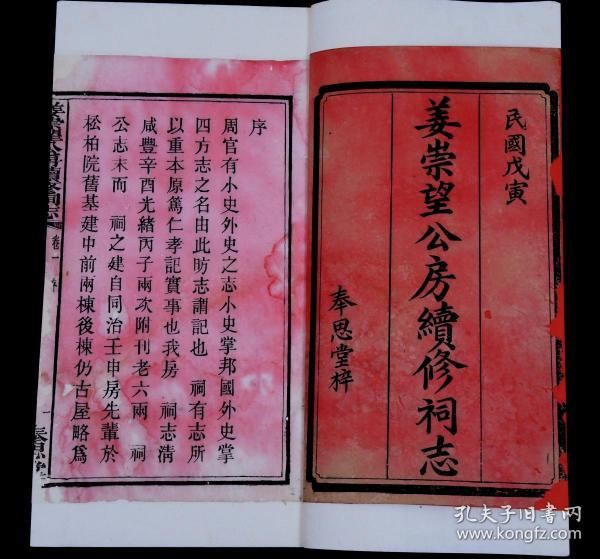 民國戊寅
姜崇望公房續修祠志
奉思堂梓
序
周官有小史外史之志小史掌邦國外史掌
四方志之名由此昉志謂記也 祠有志所
以重本原篤仁孝記實事也我房 祠志清
咸豐辛酉光緒丙子兩次附刊老六兩 祠
公志末而 祠之建自同治壬申房先輩於
松柏院舊基建中前兩棟後棟仍古屋略爲
卷一 序
孔夫子旧书网
www.kongfz.com